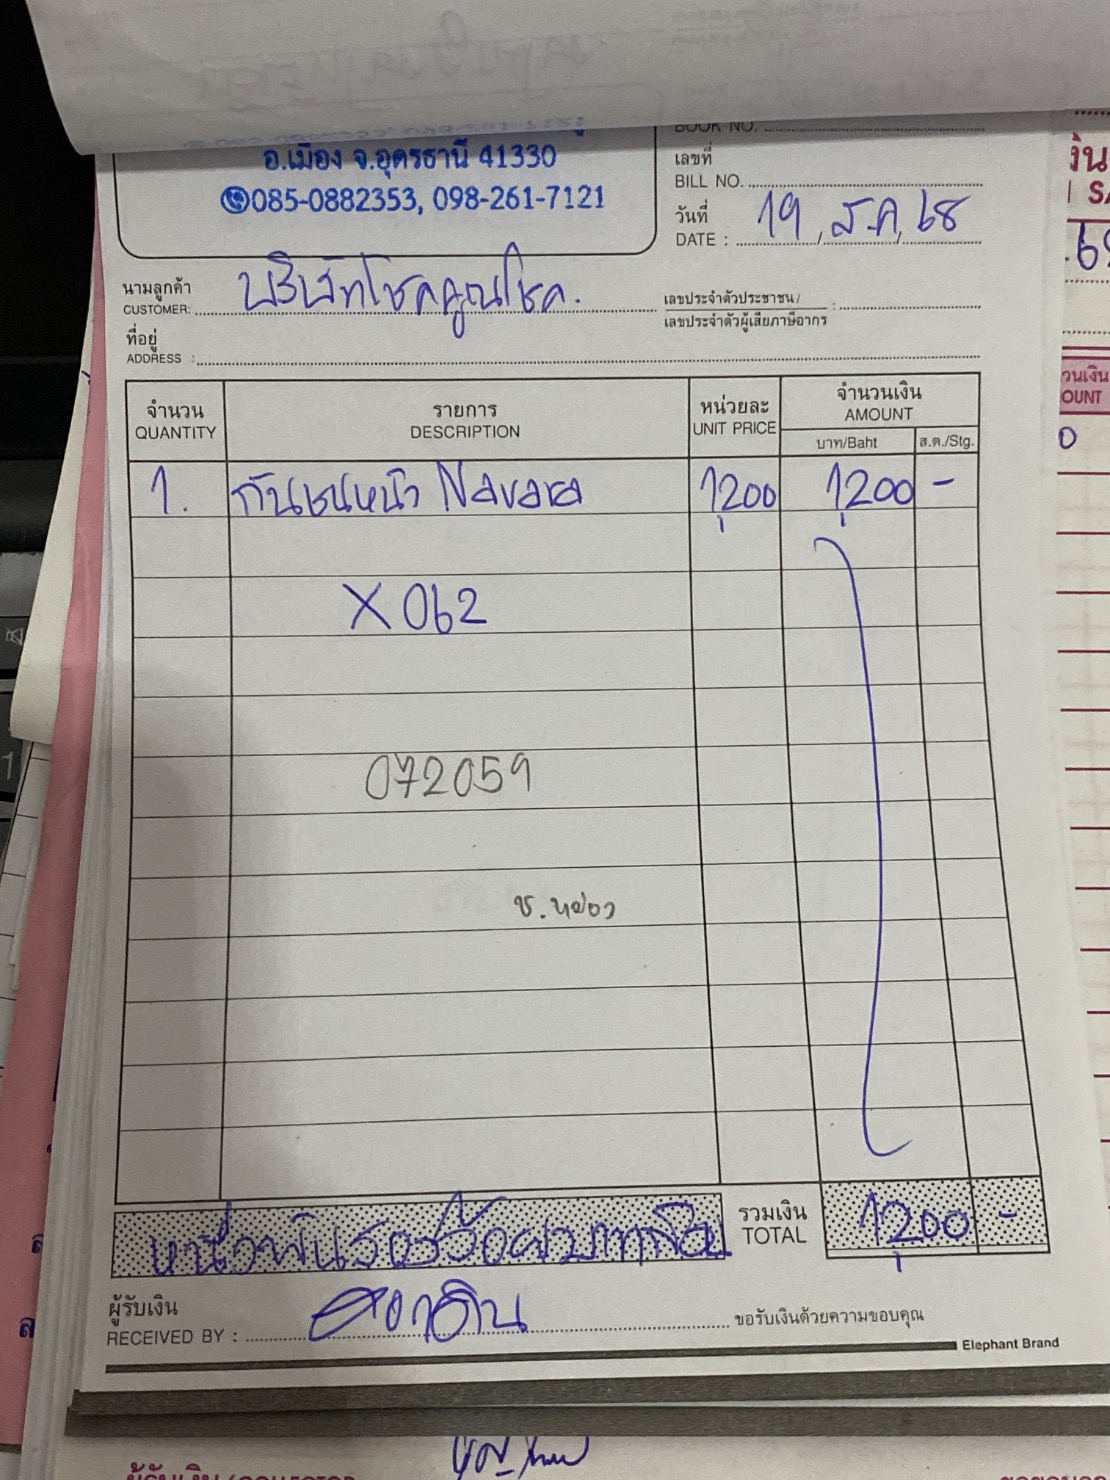 BOOK NO.
อ.เมือง จ.อุดรธานี 41330
085-0882353, 098-261-7121
เลขที่
BILL NO.
วันที่
DATE : 19 / ส.ค. / 68
นามลูกค้า
CUSTOMER: บริษัทโชคคูณโชค.
เลขประจำตัวประชาชน/
เลขประจำตัวผู้เสียภาษีอากร :
ที่อยู่
ADDRESS :
จำนวน รายการ หน่วยละ จำนวนเงิน
QUANTITY DESCRIPTION UNIT PRICE AMOUNT
บาท/Baht ส.ต./Stg.
1. กันชนหน้า Navara 1,200 1,200 -
X062
072059
ช.หย่อง
รวมเงิน
TOTAL 1,200 -
หนึ่งพันสองร้อยบาทถ้วน
ผู้รับเงิน
RECEIVED BY :
ขอรับเงินด้วยความขอบคุณ
Elephant Brand